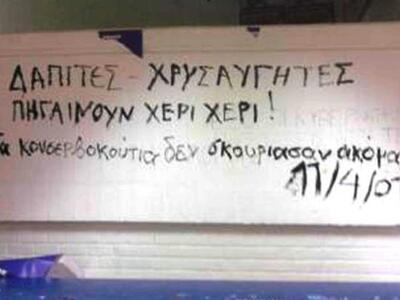 ΔΑΠΙΤΕΣ - ΧΡΥΣΑΥΓΗΤΕΣ
ΠΗΓΑΙΝΟΥΝ ΧΕΡΙ ΧΕΡΙ!
Τα κονσερβοκούτια δεν σκουριασαν ακόμα
17/4/07